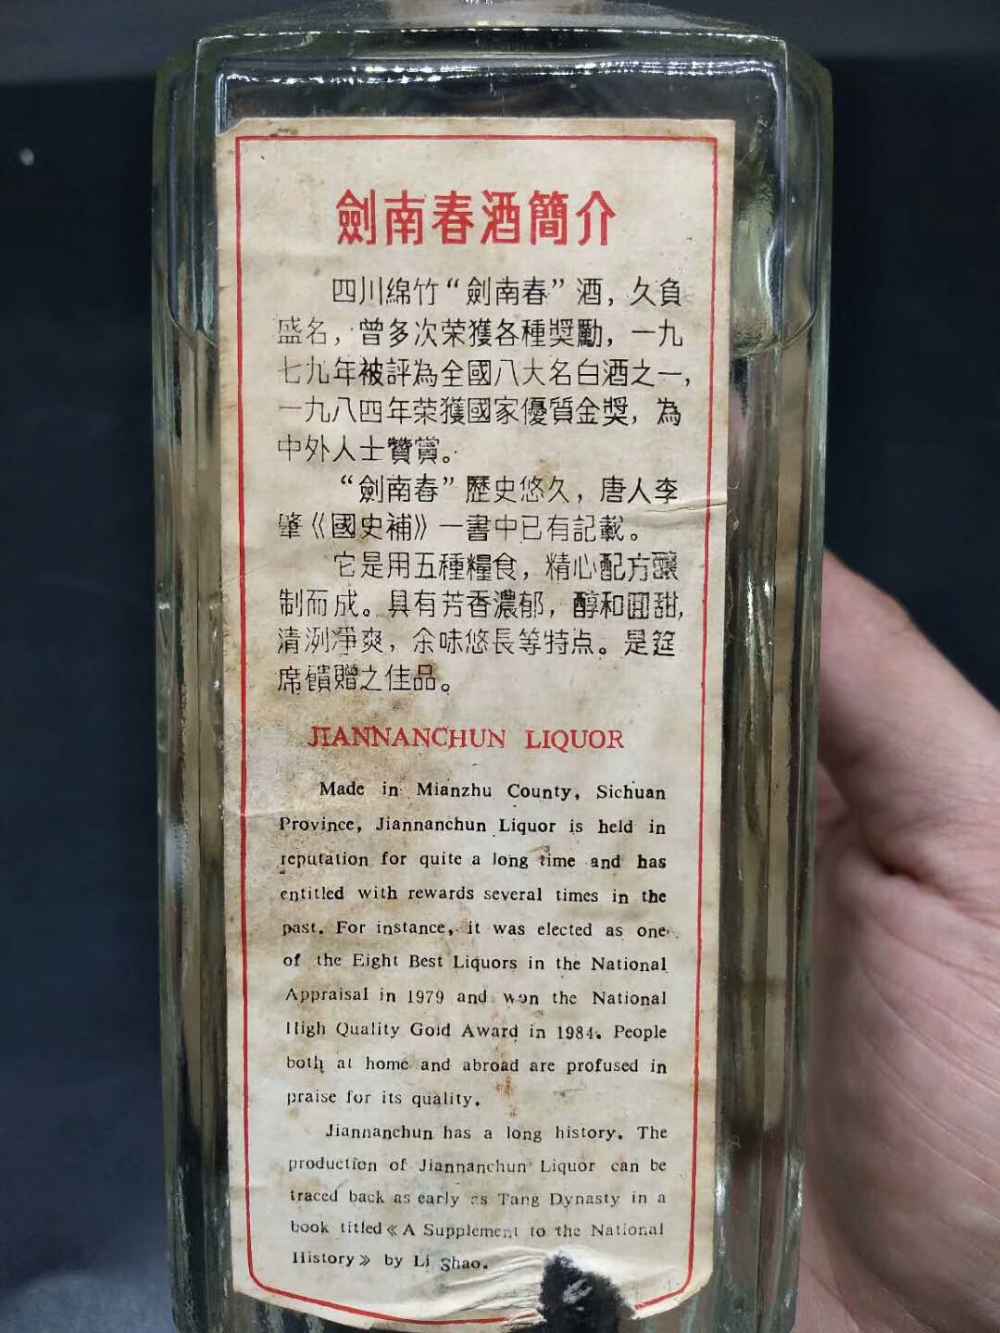 劍南春酒簡介
四川綿竹“劍南春”酒，久負
盛名，曾多次荣獲各種獎勵，一九
七九年被評為全國八大名白酒之一，
一九八四年荣獲國家優質金獎，為
中外人士贊賞。
“劍南春”歷史悠久，唐人李
肇《國史補》一書中已有記載。
它是用五種糧食，精心配方釀
制而成。具有芳香濃郁，醇和回甜，
清洌凈爽，余味悠長等特点。是筵
席饋贈之佳品。
JIANNANCHUN LIQUOR
Made in Mianzhu County, Sichuan
Province, Jiannanchun Liquor is held in
reputation for quite a long time and has
entitled with rewards several times in the
past. For instance, it was elected as one
of the Eight Best Liquors in the National
Appraisal in 1979 and won the National
High Quality Gold Award in 1984. People
both at home and abroad are profused in
praise for its quality.
Jiannanchun has a long history. The
production of Jiannanchun Liquor can be
traced back as early as Tang Dynasty in a
book titled《A Supplement to the National
History》 by Li Shao.